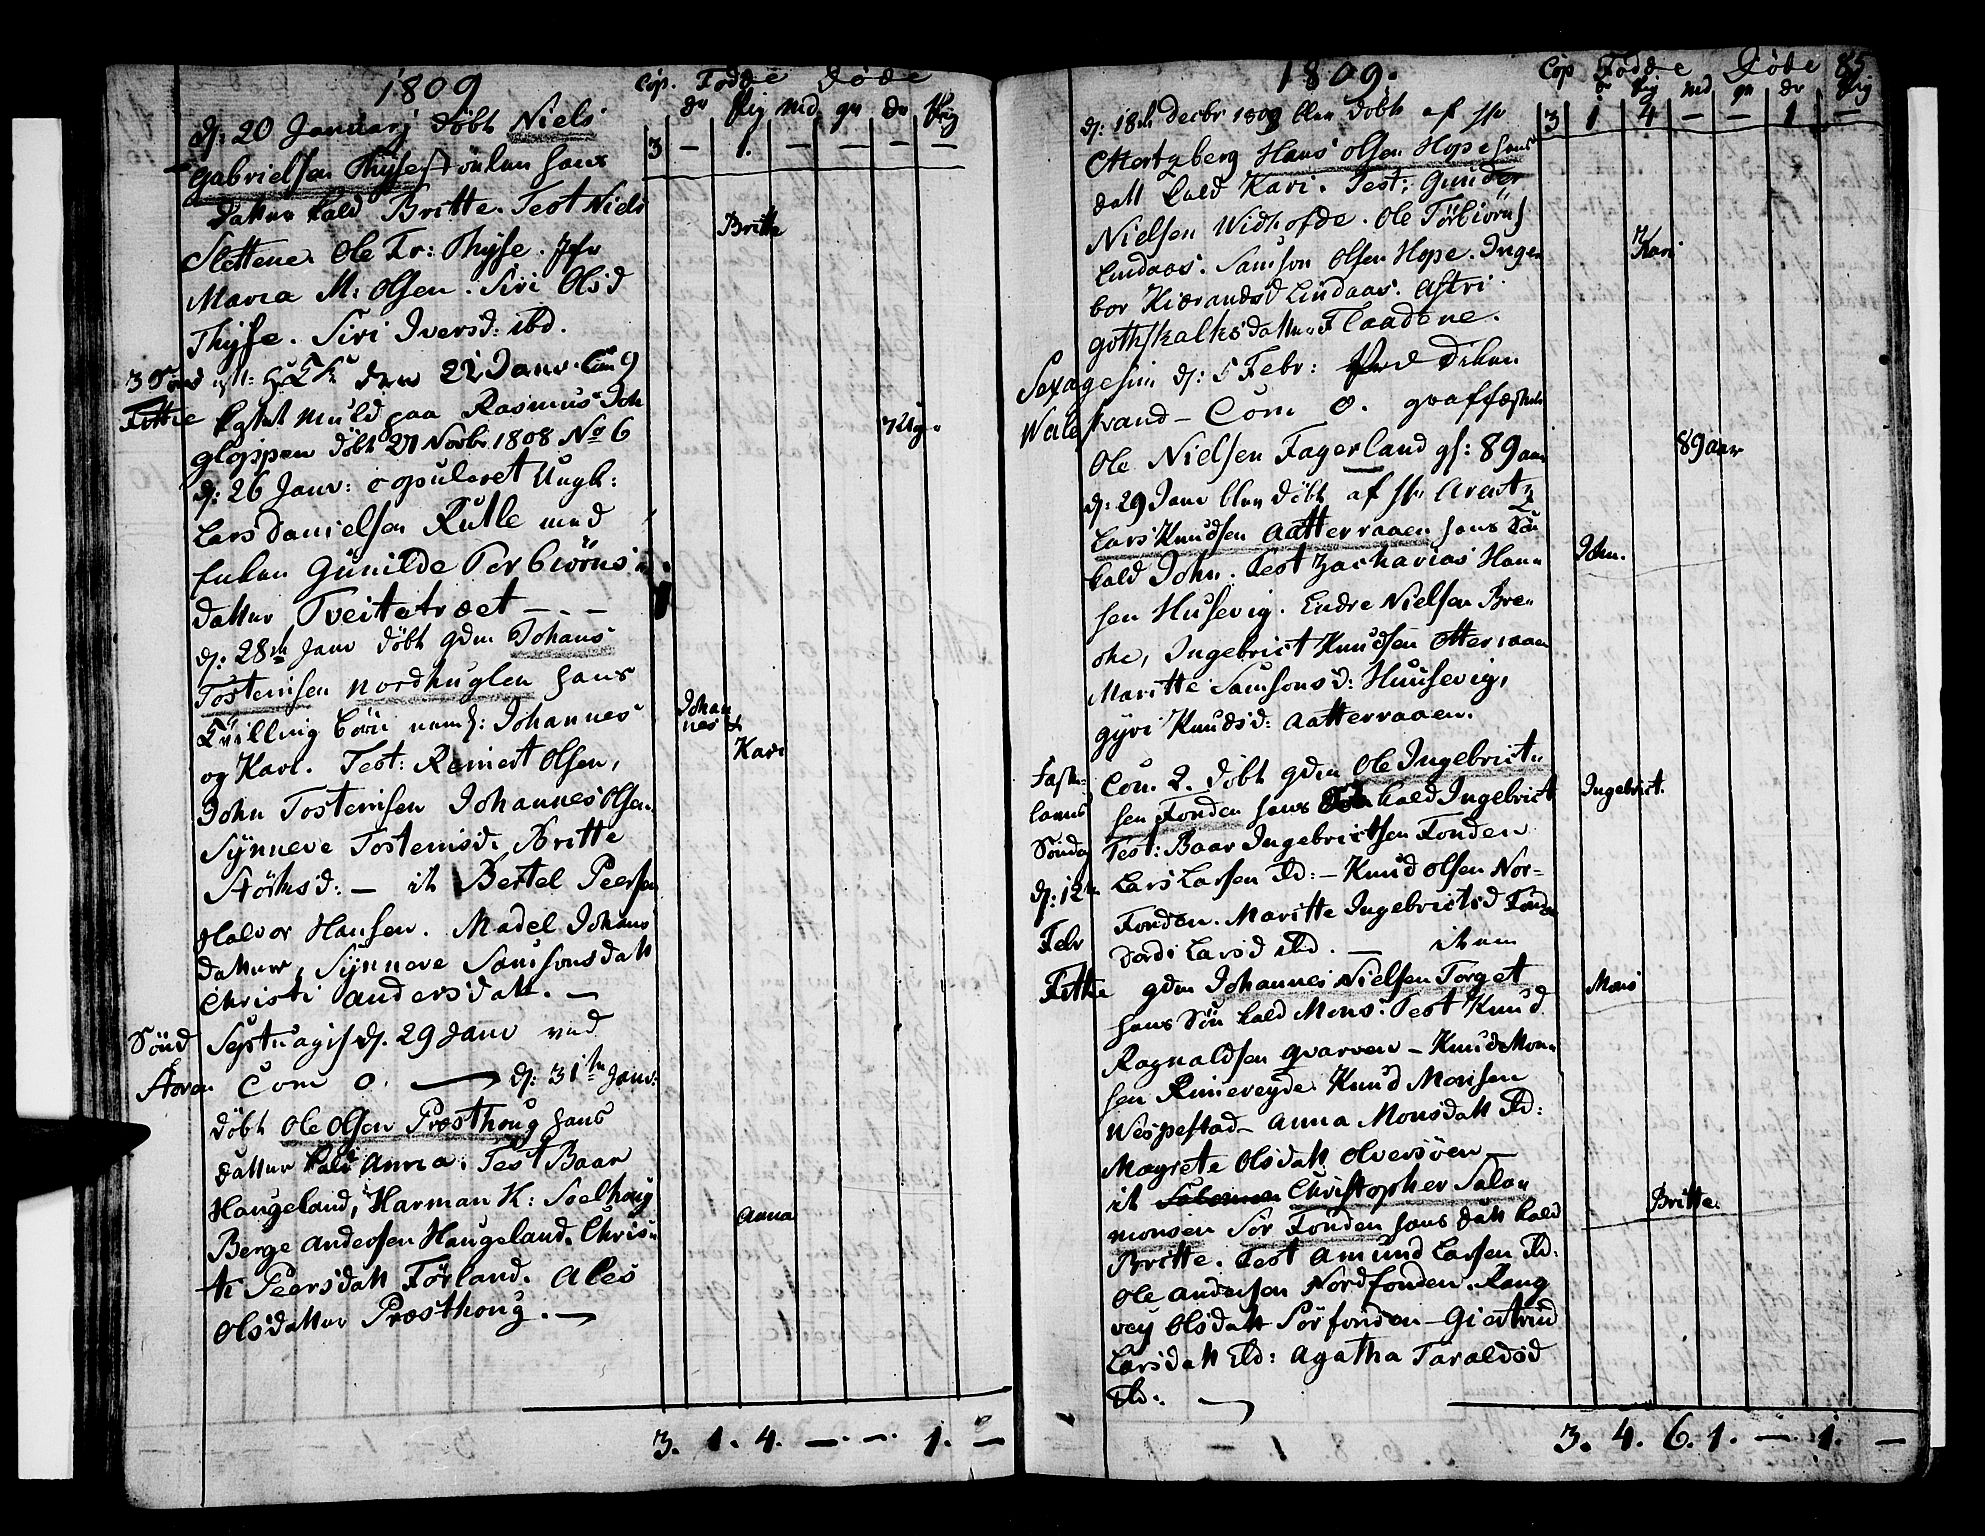 1809
Cop. Födde Döde
dr pig md qv dr pig
3 — 1. — — — —
d: 20 Januarj döbt Niels
Gabrielsen Thysse hans
datter kald Britte. Test Niels
Britte
Slettene. Ole Fr: Thysse. Jfr
Maria M: Olsen. Siri Olsd
Thysse. Siri Iversd: ibd.
3 Sönd den 22 Janv. Com 9
Fittie kastet Muld paa Rasmus Joh
gloppen döbt 27 Novbr 1808 No 6
7 Ug.
d: 26 Janv: copuleret Ungk:
Lars Danielsen Rutle med
Enken Gunilde Torbiörns
datter Tveitetræet — - —
d: 28de Janv döbt gdm Johans
Tostensen Nordhuglen hans
Tvilling börn nemt: Johannes
Johan
nes &
og Kari. Test: Reinert Olsen,
Kari
John Tostensen Johannes Olsen
Synneve Tostensd: Britte
Störksd: — it Bertel Peersen
Halvor Hansen. Madel Johans
datter, Synneve Samsonsdatt
Christi Andersdatt. —
Sönd Septuagis d. 29 Janv ved
Stören Com 0. — d: 31te Janv:
döbt Ole Olsen Præsthoug hans
datter kald Anna. Test Baar
Hougeland, Harman K: Soelhoug
Anna
Berge Andersen Haugeland. Chris-
ti Peersdatt Förland. Ales
Olsdatter Præsthoug. —
3. 1. 4. —. —. 1. —
1809.
Cop Födde Döde 85
dr pig md qv dr pig
3 1 4 — — 1 —
d: 18de Decbr 1808 blev döbt af Hr
Hertzberg Hans Olsen Hope hans
datt kald Kari. Test: Gunder
Nielsen Widhofde. Ole Törbiörns
Kari
Lindaas. Samson Olsen Hope. Inge-
bor Kiærandsd Lindaas. Astri
Gothskalksdatter Flaadene.
Sexagesim d: 5 Febr: ved
Walestrand — Com 0. graffæstet
Ole Nielsen Fagerland gl: 89 aar
89 aar
d: 29 Janv blev döbt af Hr Arentz
Lars Knudsen Aatterraaen hans Sön
kald John. Test Zacharias Han-
John.
sen Husevig. Endre Nielsen Bre-
che, Ingebrict Knudsen Otterraaen
Maritte Samsonsd: Huusevig,
gyri Knudsd: Aatterraaen.
Faste- Com. 2. döbt gdm Ole Ingebrict-
lavns sen Fonden hans Sön kald Ingebrict
Ingebrict.
Söndag Test: Baar Ingebrictsen Fonden
d: 12te Lars Larsen Ibd: — Knud Olsen Nor-
Febr Fonden. Maritte Ingebrictsd Fonden
Dordi Larsd ibd. — item
Fittie gdm Johannes Nielsen Torget
Mons
hans Sön kald Mons. Test Knud
Ragnaldsen Qvarven — Knud Mon-
sen Rimereyde. Knud Monsen
Wespestad — Anna Monsdatt Ibd:
Magrete Olsdatt Olversöen —
it Salomon Christopher Salo-
Britte.
monsen Sör Fonden hans datt kald
Britte. Test Amund Larsen Ibd:
Ole Andersen Nordfonden. Rang
vey Olsdatt Sörfonden — Giertrud
Larsdatt Ibd: Agatha Taraldsd
Ibd: —
3. 4. 6. 1. —. 1. —